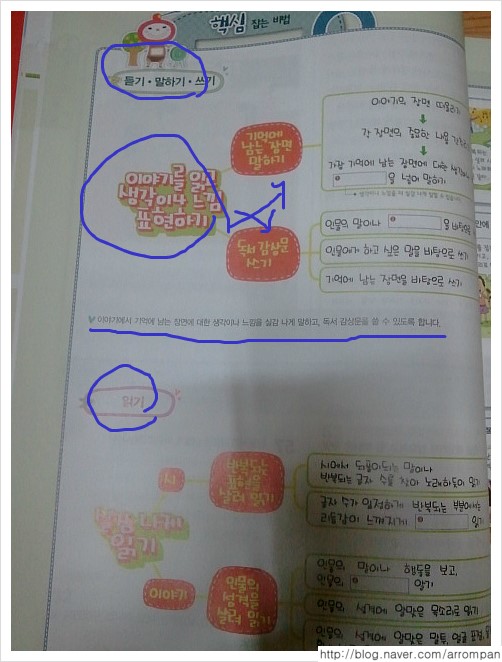 핵심 잡는 비법
듣기 • 말하기 • 쓰기
이야기를 읽고
생각이나 느낌
표현하기
기억에
남는 장면
말하기
이야기의 장면 떠올리기
각 장면의 중요한 내용
가장 기억에 남는 장면에 대한 생각이나
을 넣어 말하기
독서 감상문
쓰기
인물의 말이나 을 바탕으로
인물에게 하고 싶은 말을 바탕으로 쓰기
기억에 남는 장면을 바탕으로 쓰기
이야기에서 기억에 남는 장면에 대한 생각이나 느낌을 실감 나게 말하고, 독서 감상문을 쓸 수 있도록 합니다.
읽기
읽기
시
반복되는
표현을
살려 읽기
시에서 되풀이되는 말이나
반복되는 글자 수를 찾아 노래하듯이 읽기
글자 수가 일정하게 반복되는 부분에서는
리듬감이 느껴지게 읽기
이야기
인물의
성격을
살려 읽기
인물의 말이나 행동을 보고,
인물의 알기
인물의 성격에 알맞은 목소리로 읽기
인물의 성격에 알맞은 말투, 얼굴 표정,
http://blog.naver.com/arrompan